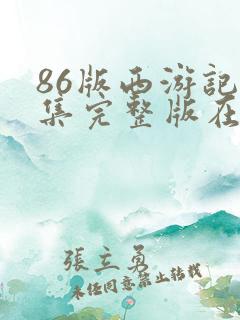 86版西游記
集完整版在
張立勇
未经同意禁止转载